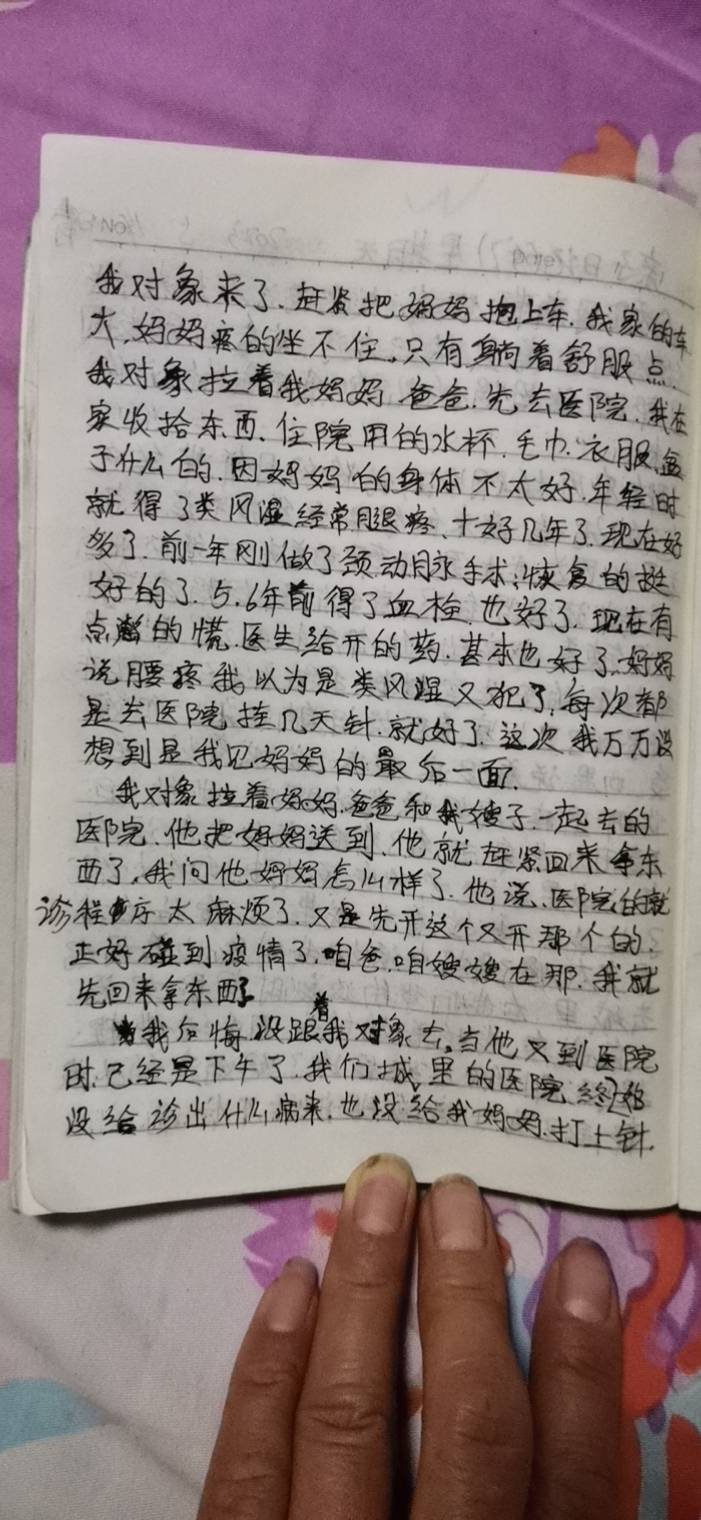 我对象来了.赶紧把妈妈抱上车.我家的车
大,妈妈疼的坐不住,只有躺着舒服点.
我对象拉着我妈妈.爸爸.先去医院.我在
家收拾东西.住院用的水杯.毛巾.衣服.盆
子什么的.因妈妈的身体不太好.年轻时
就得了类风湿经常腿疼.十好几年了.现在好
多了.前一年刚做了颈动脉手术;恢复的挺
好的了.5.6年前得了血栓.也好了.现在有
点的慌.医生给开的药.基本也好了.妈妈
说腰疼我以为是类风湿又犯了,每次都
是去医院挂几天针.就好了.这次我万万没
想到是我见妈妈的最后一面.
我对象拉着妈妈.爸爸和我嫂子.一起去的
医院.他把妈妈送到.他就赶紧回来拿东
西了.我问他妈妈怎么样了.他说.医院的就
诊程序太麻烦了.又是先开这个又开那个的.
正好碰到疫情了.咱爸.咱嫂嫂在那.我就
先回来拿东西了
我后悔没跟着我对象去.当他又到医院
时.已经是下午了.我们城里的医院.终始
没给诊出什么病来.也没给我妈妈.打上针.